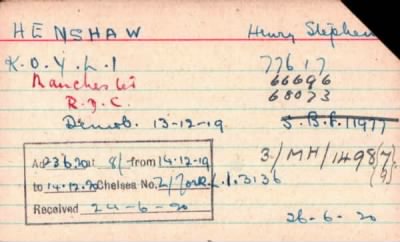 HENSHAW Henry Stephen
K.O.Y.L.I 77617
Manchester 66696
R.D.C. 68073
Demob. 13-12-19 J.B.F.11977
Ad 23620 at 8/- from 14.12.19 3/MH/1498(7)
to 14.12.20 Chelsea No. 2/York.L.I.3136
Received 24-6-20
26-6-20